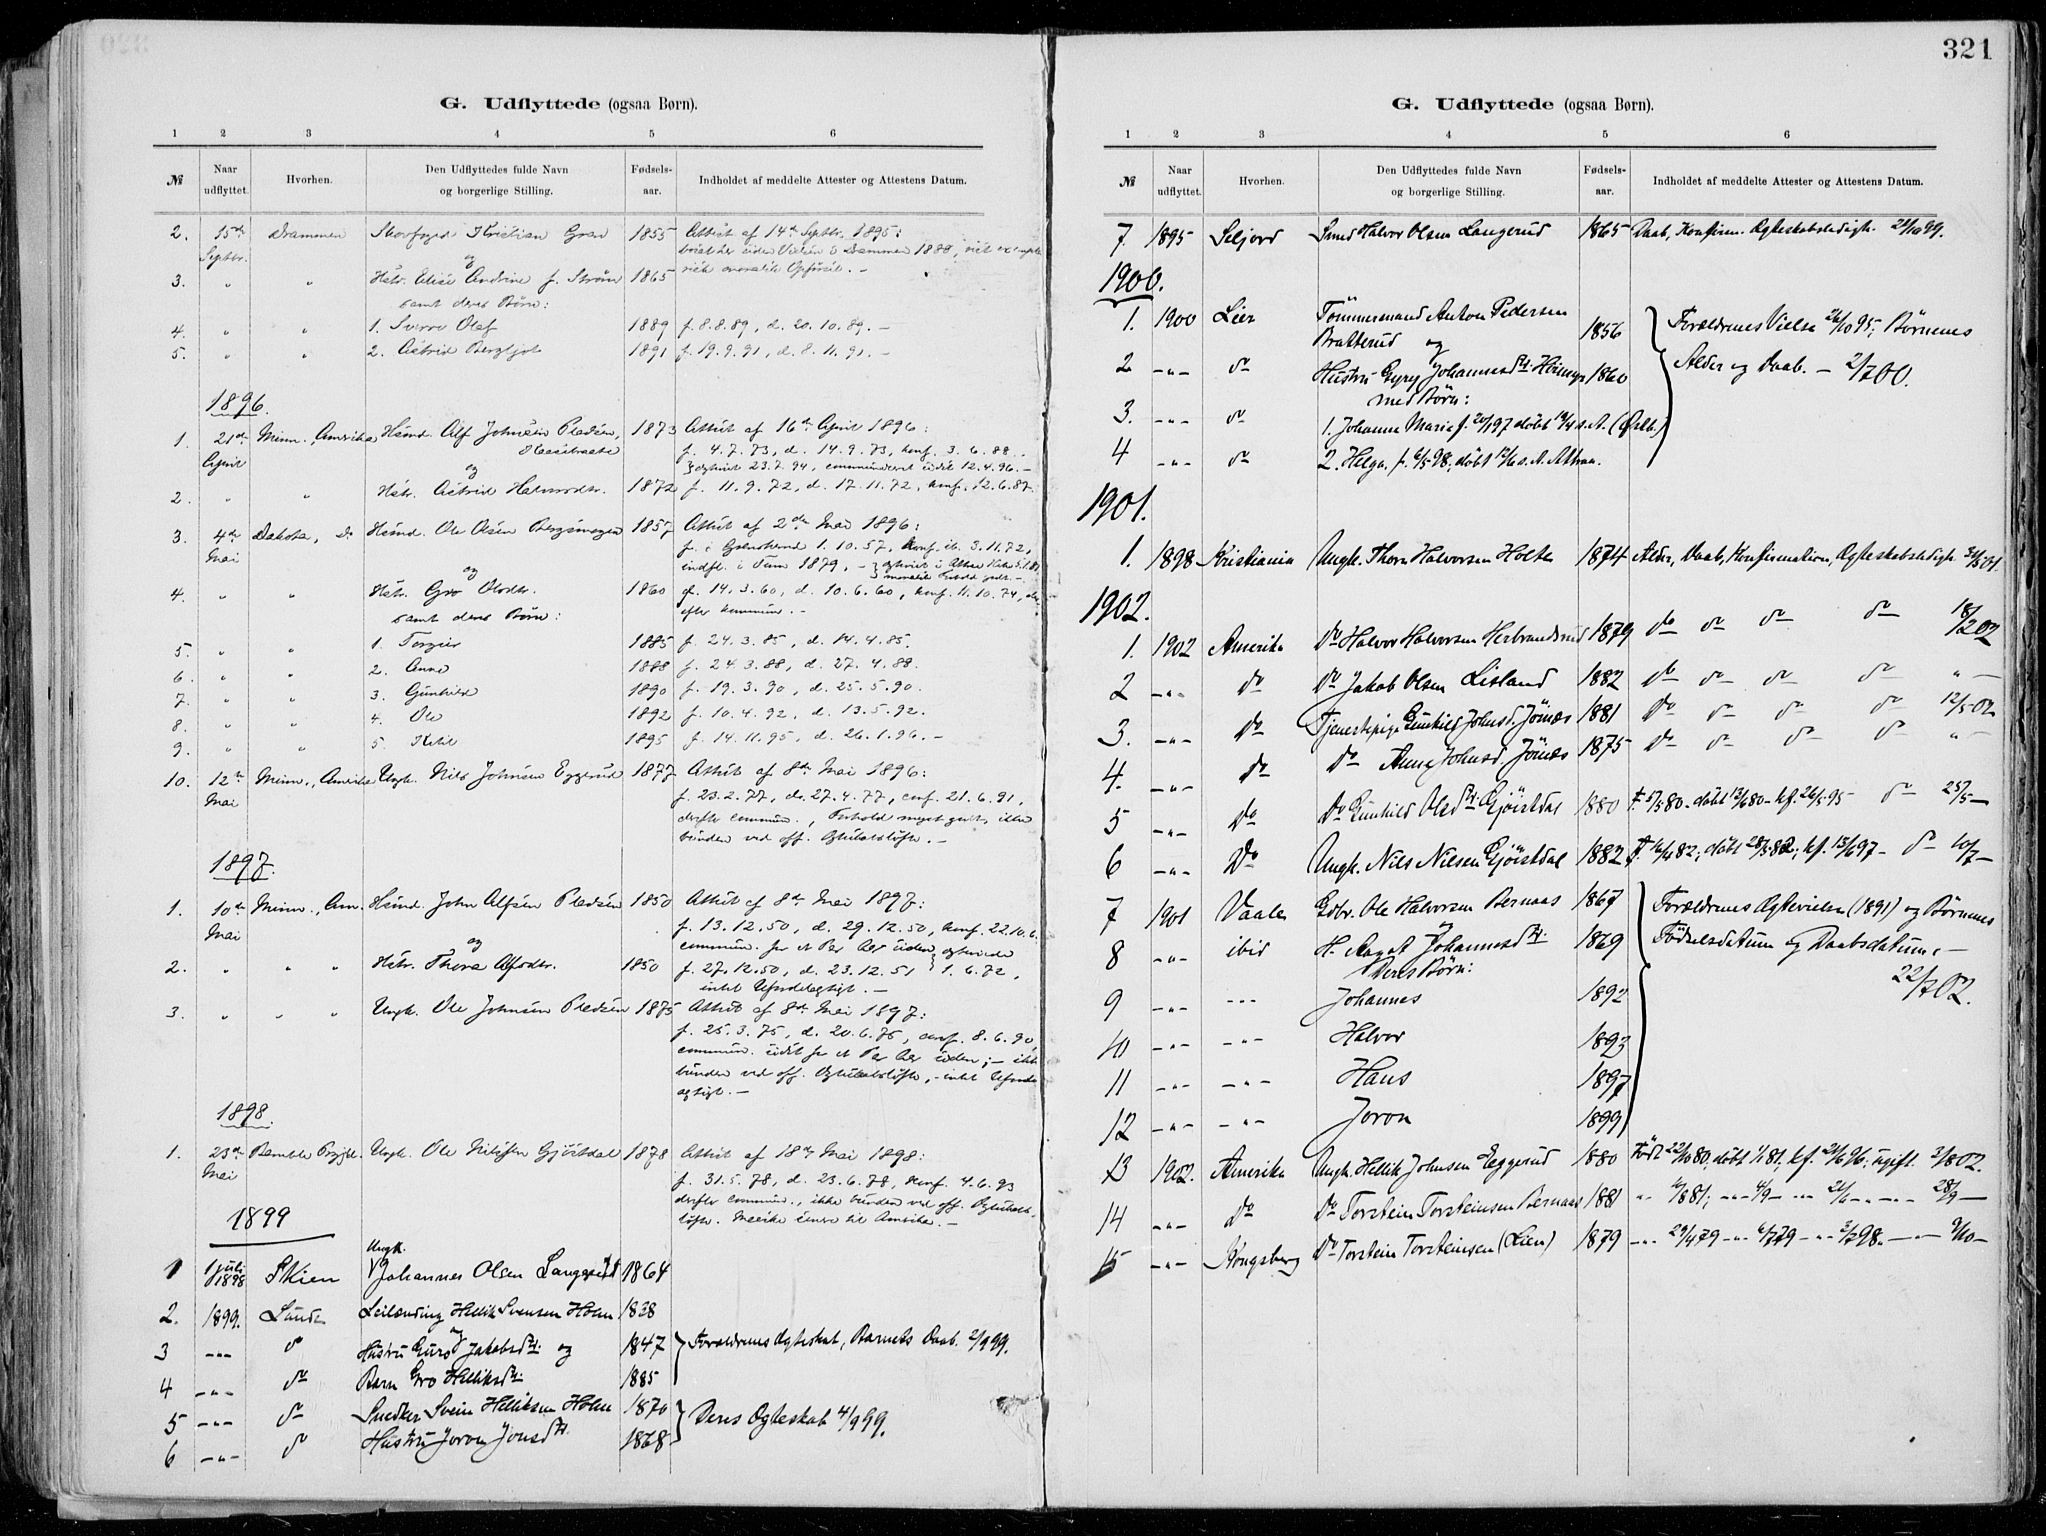 G. Udflyttede (ogsaa Børn).
1 2 3 4 5 6
№ Naar udflyttet. Hvorhen. Den Udflyttedes fulde Navn og borgerlige Stilling. Fødsels-aar. Indholdet af meddelte Attester og Attestens Datum.
2. 15de Septbr. Drammen Skovfoged Kristian Grav 1855 Attest af 14de Septbr. 1895:
og
3. " " Hstr. Elise Andrine f. Strøm 1865
samt deres Børn:
4. " " 1. Sverre Olaf 1889 f. 8.8.89, d. 20.10.89. —
5. " " 2. Astrid Bergljot 1891 f. 19.9.91, d. 8.11.91. —
1896.
1. 21de April Minn., Amerika Hsmd. Alf Johnsen Pladsen, 1873 Attest af 16de April 1896:
f. 4.7.73, d. 14.9.73, konf. 3.6.88.
og ægteviet 23.7.94, communiceret sidst 12.4.96. —
2. " " Hstr. Astrid Halvorsdtr. 1872 f. 11.9.72, d. 17.11.72, konf. 12.6.87.
3. 4de Mai Dakota, do Hsmd. Ole Olsen Bergsmogen 1857 Attest af 2den Mai 1896:
f. i Gransherred 1.10.57, konf. ib. 3.11.72,
og indfl. i Tuns 1879, —
4. " " Hstr. Gro Olsdtr. 1860 f. 14.3.60, d. 10.6.60, konf. 11.10.74, der-
samt deres Børn: efter kommun. —
5. " " 1. Torgeir 1885 f. 24.3.85, d. 14.4.85.
6. " " 2. Anne 1888 f. 24.3.88, d. 27.4.88.
7. " " 3. Gunhild 1890 f. 19.3.90, d. 25.5.90.
8. " " 4. Ole 1892 f. 10.4.92, d. 13.5.92.
9. " " 5. Ketil 1895 f. 14.11.95, d. 26.1.96. —
10. 12te Mai Minn., Amerika Ungk. Nils Johnsen Eggerud 1877 Attest af 8de Mai 1896:
f. 23.2.77, d. 27.4.77, conf. 21.6.91,
derefter commun., Forhold meget godt, ikke
bunden ved off. Ægteskabsløfte. —
1897.
1. 10de Mai Minn., Am. Hsmd. John Alfsen Pladsen 1850 Attest af 8de Mai 1897:
f. 13.12.50, d. 29.12.50, konf. 22.10.6.
og commun. for et Par Aar siden, ægteviede
2. " " " Hstr. Thora Alfsdtr. 1850 f. 27.12.50, d. 23.12.51 1.6.72,
intet Ufordelagtigt. —
3. " " " Ungk. Ole Johnsen Pladsen 1875 Attest af 8de Mai 1897:
f. 25.3.75, d. 20.6.75, conf. 8.6.90,
commun. sidst for et Par Aar siden; — ikke
bunden ved off. Ægteskabsløfte, — intet Ufordel-
agtigt. —
1898.
1. 23de Mai Bamble Prgjld. Ungk. Ole Nilssen Gjöistdal 1878 Attest af 18de Mai 1898:
f. 31.5.78, d. 23.6.78, konf. 4.6.93
derefter commun., ikke bunden ved off. Ægteskabs-
løfte. Maaske senere til Amerika. —
1899
1 1 juli 1898 Skien Ungk. Johannes Olsen Langerud 1864
2. 1899. Sande Leilænding Hellik Svensen Holm 1838
og
3 -"- do Hustru Guro Jakobsdtr. og 1847 Forældrenes Ægteskab, Barnets Daab. 2/9 99.
4 -"- do Barn Gro Helliksdtr. 1885
5 -"- do Snedker Svein Helliksen Holm 1870 Deres Ægteskab 4/9 99.
6 -"- do Hustru Joron Jonsdtr. 1868
321
G. Udflyttede (ogsaa Børn).
1 2 3 4 5 6
№ Naar udflyttet. Hvorhen. Den Udflyttedes fulde Navn og borgerlige Stilling. Fødsels-aar. Indholdet af meddelte Attester og Attestens Datum.
7 1895 Seljord Smed Halvor Olsen Langerud 1865 Daab, Konfirm. Ægteskabsledigh. 21/10 99.
1900.
1. 1900 Lier Tömmermand Anton Pedersen
Bratterud og 1856 Forældrenes Vielse 26/10 95; Börnenes
2 -"- do Hustru Gyry Johannesdtr. 1860 Alder og Daab. — 2/7 00.
med Börn:
3. -"- do 1. Johanna Marie f. 20/1 97 döbt 19/4 s. A.
4 -"- do 2. Helga, f. 6/5 98, döbt 12/6 s. A. Attraa.
1901.
1. 1898 Kristiania Ungk. Thor Halvorsen Holte 1874 Alder, Daab, Konfirmation, Ægteskabsledigh. 30/5 01.
1902.
1. 1902 Amerika Do Halvor Halvorsen Herbrandsrud 1879 do do do do 18/2 02
2 -"- do Do Jakob Olsen Lisland 1882 do do do do " —
3. -"- Do Tjenestepige Gunhild Johnsd. Jönæs 1881 Do do do do 12/5 02
4. -"- Do Do Anne Johnsd. Jönæs 1875 Do do do do " —
5 -"- Do Do Gunhild Olsdtr. Gjöistdal 1880 F. 5/5 80. döbt 13/6 80 - kf. 26/5 95 - do 25/5 —
6 -"- Do Ungk. Nils Nilsen Gjöistdal 1882 f. 16/4 82; döbt 28/5 82; kf. 13/6 97 - do 10/7 —
7 1901 Vaale Gdbr. Ole Halvorsen Bernaas 1867 Forældrenes Ægtevielse (1891) og Börnenes
og
8 -"- ibid H. Aagot Johannesdtr. 1869 Födselsdatum og Daabsdatum. —
Deres Börn: 22/7 02.
9 -"- -"- Johannes 1892
10 -"- -"- Halvor 1893
11 -"- -"- Hans 1897
12 -"- -"- Joron 1899
13 1902. Amerika Ungk. Hellik Johnsen Eggerud 1880 Födt 22/10 80, döbt 1/1 81, kf. 21/6 96; ugift. 3/8 02.
14 -"- Do Do Torstein Torsteinsen Bernaas 1881 " 6/8 81; -"- 4/9 - -"- 21/6 -"- -"- 28/9 —
15 -"- Kongsberg Do Torstein Torsteinsen (Lien) 1879 -"- 29/4 79 -"- 6/7 79 -"- 3/7 98. -"- 9/10 —